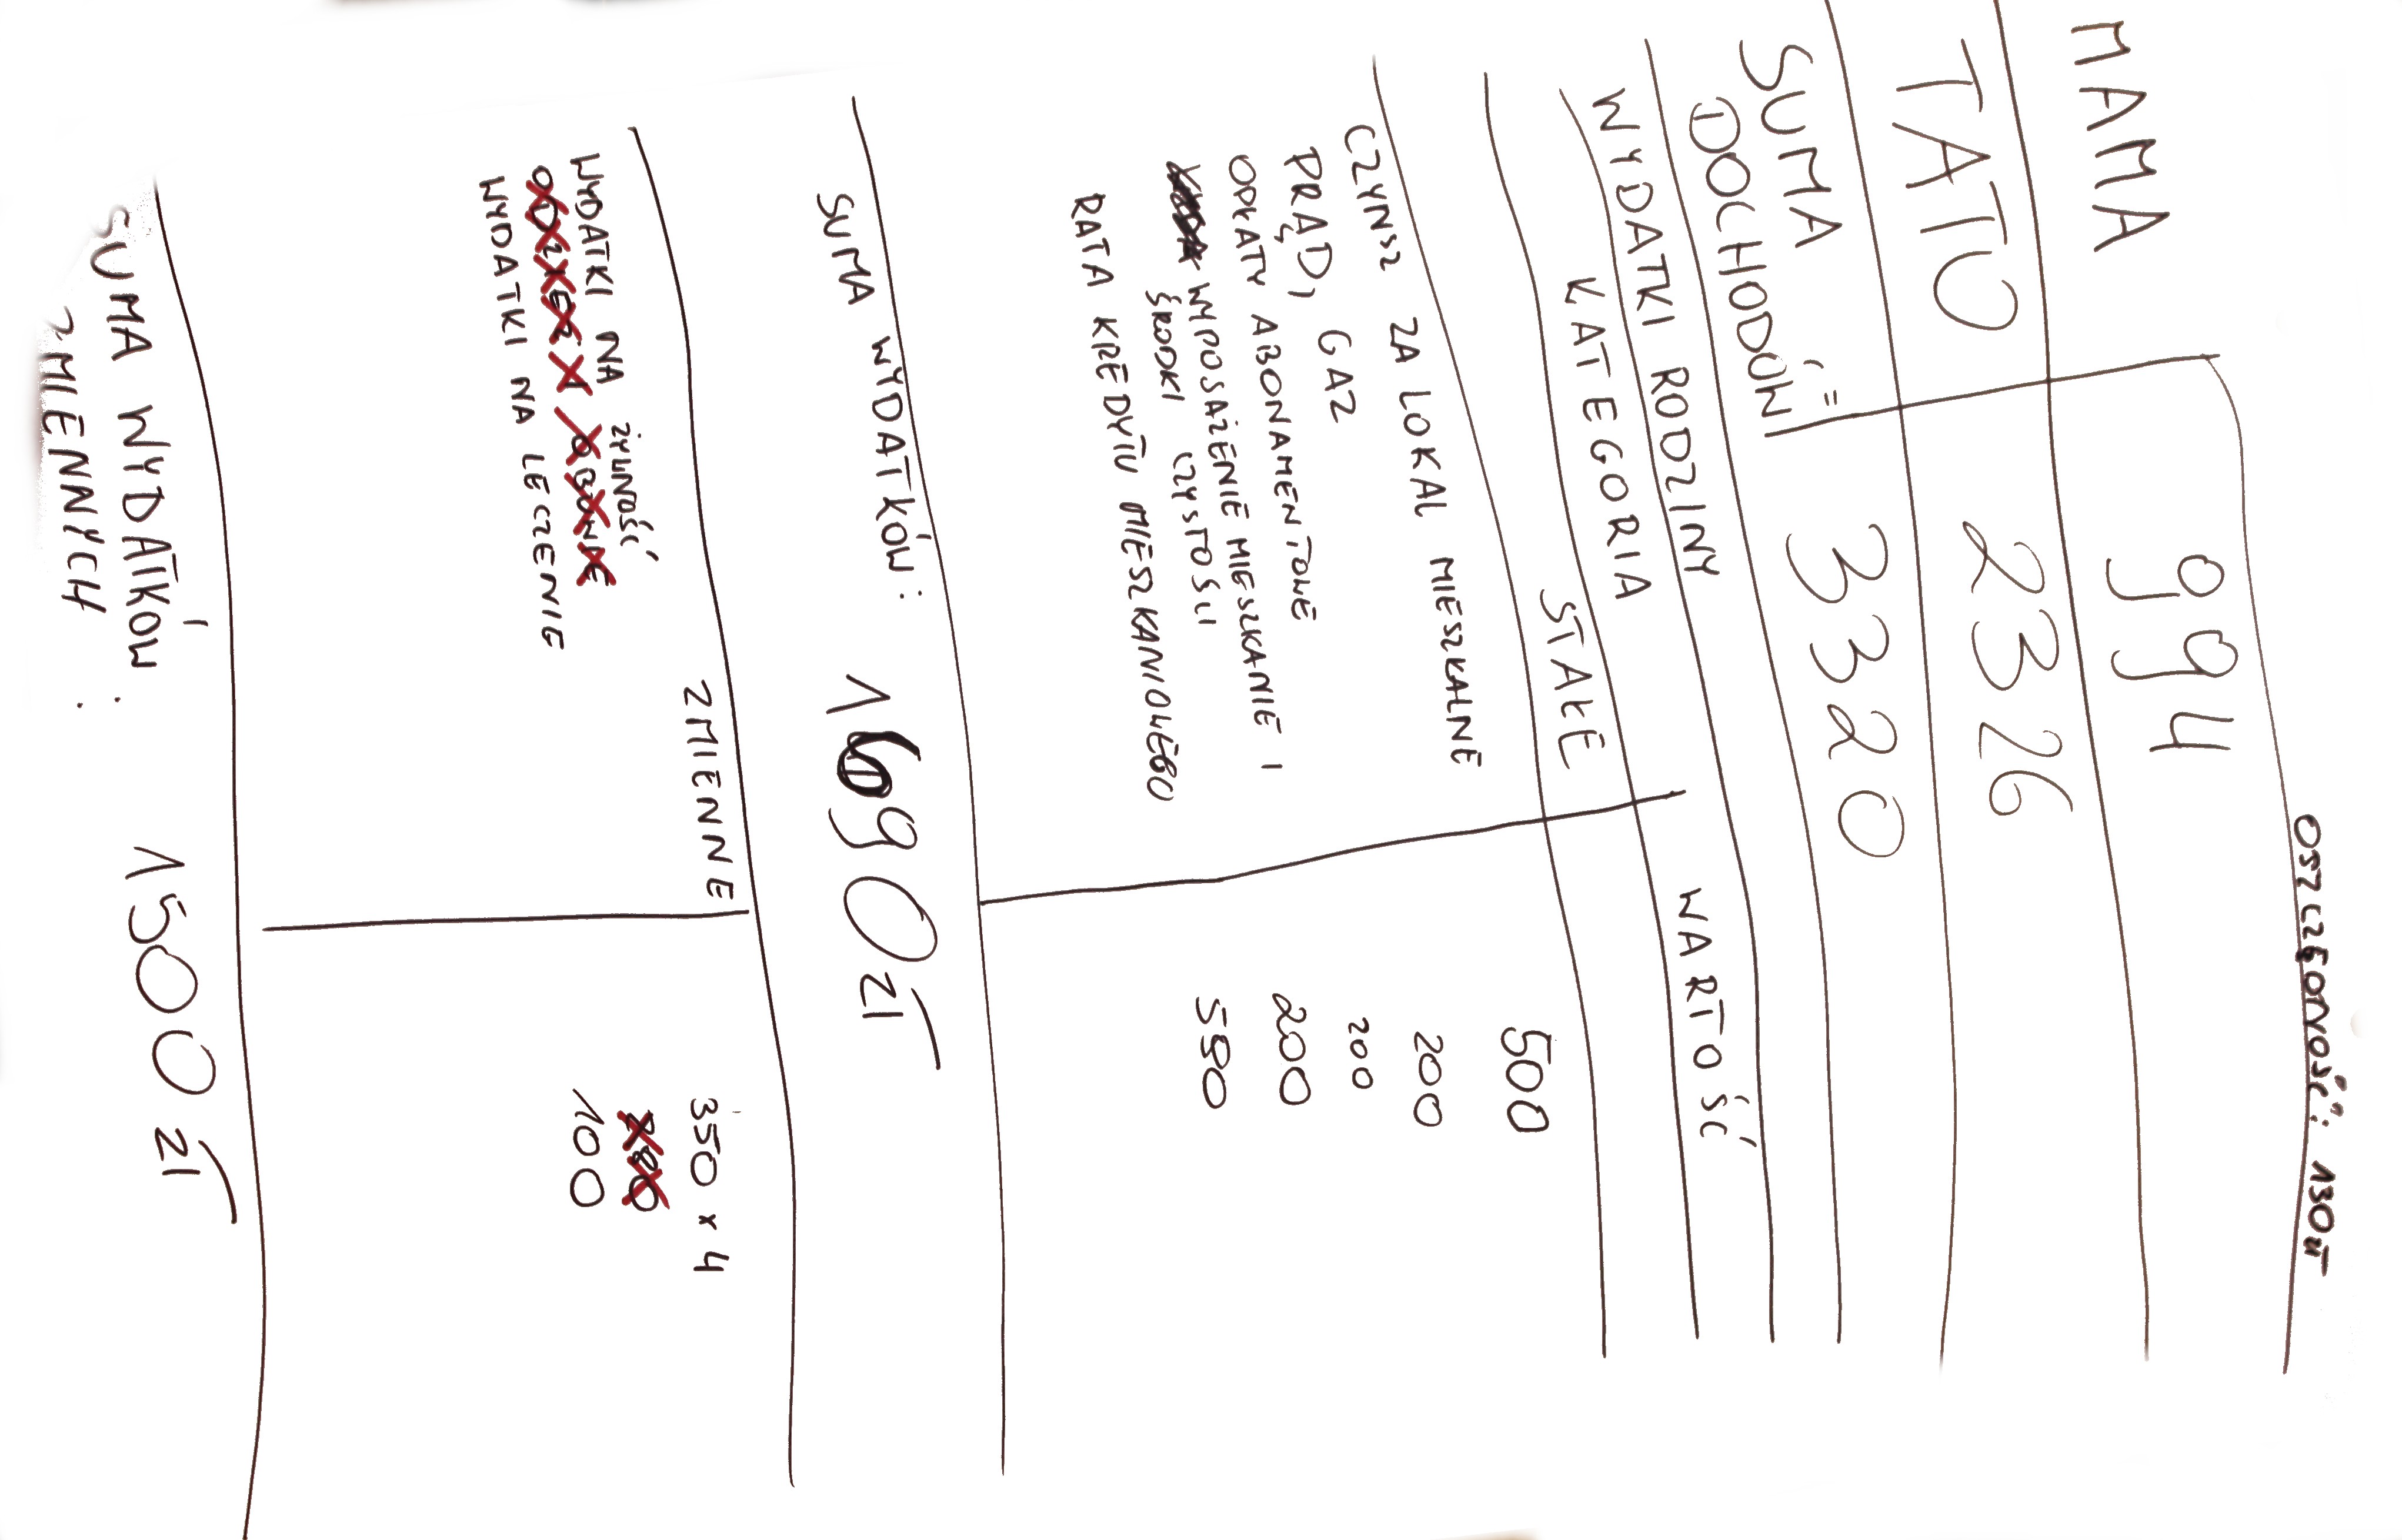 OSZCZĘDNOŚĆ: 130 zł
MAMA 994
TATO 2326
SUMA
DOCHODÓW = 3320
WYDATKI RODZINY
KATEGORIA WARTOŚĆ
STAŁE
CZYNSZ ZA LOKAL MIESZKALNE 500
PRĄD, GAZ 200
OPŁATY ABONAMENTOWE 200
WYPOSAŻENIE MIESZKANIE I 200
ŚRODKI CZYSTOŚCI
RATA KREDYTU MIESZKANIOWEGO 590
SUMA WYDATKÓW: 1690 zł
ZMIENNE
WYDATKI NA ŻYWNOŚĆ 350 x 4
WYDATKI NA LECZENIE 100
SUMA WYDATKÓW
ZMIENNYCH : 1500 zł